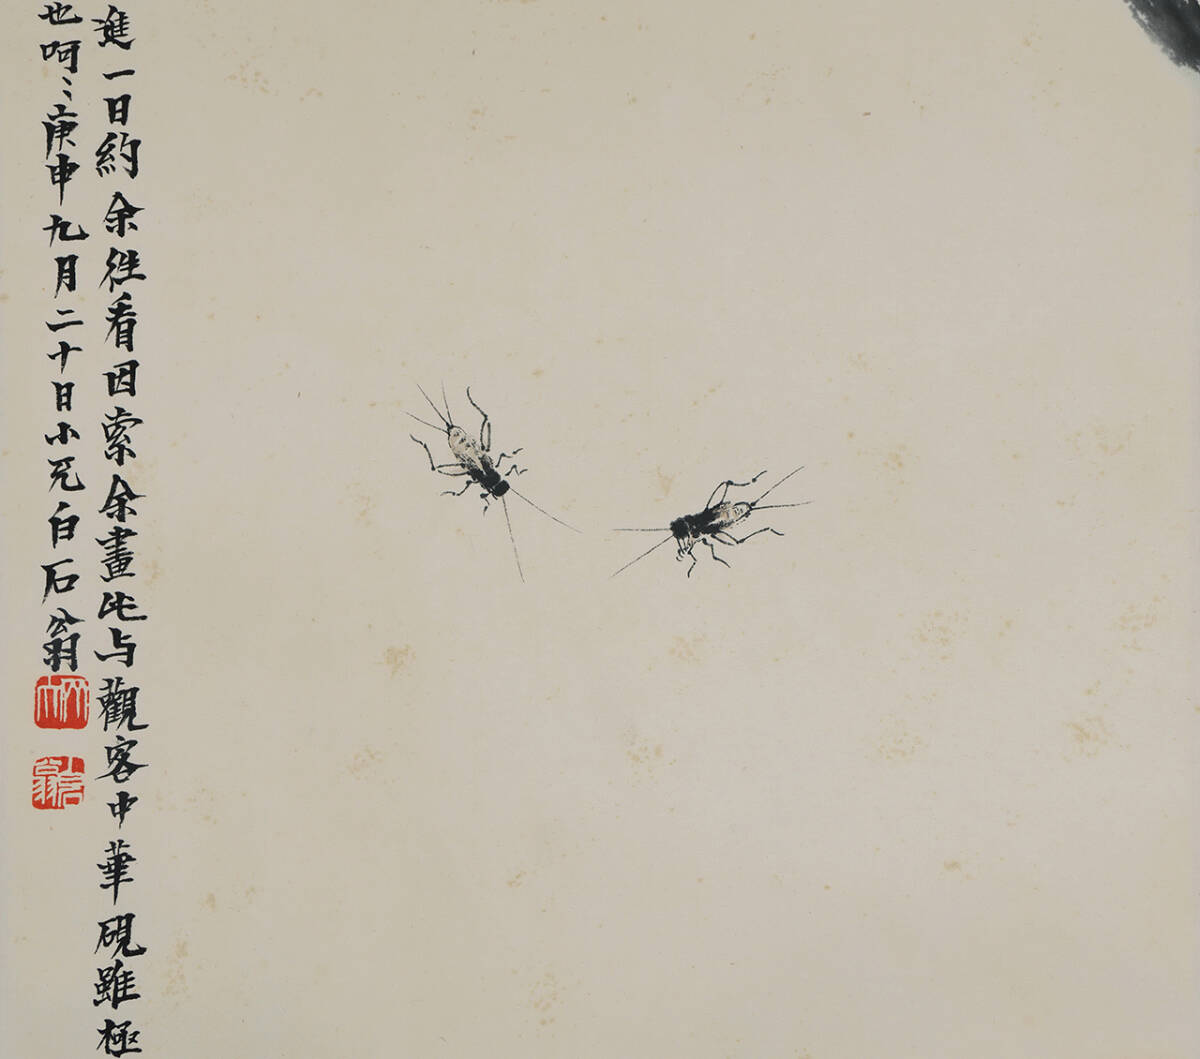 進一日約余徃看因索余畫此与觀客中華硯雖極
也呵〻庚申九月二十日小兄白石翁
白石翁